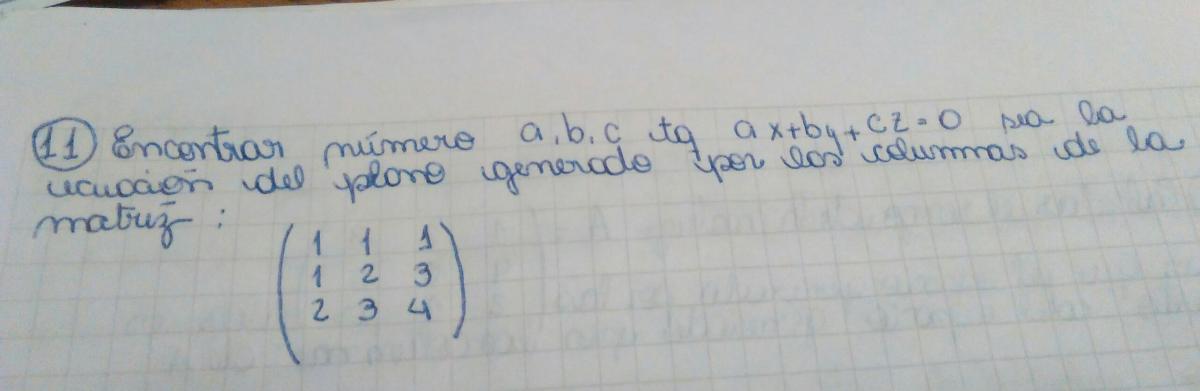 11 Encontrar número a, b, c tq ax+by+cz=0 sea la
ecuación del plano generado por las columnas de la
matriz:
1 1 1
1 2 3
2 3 4